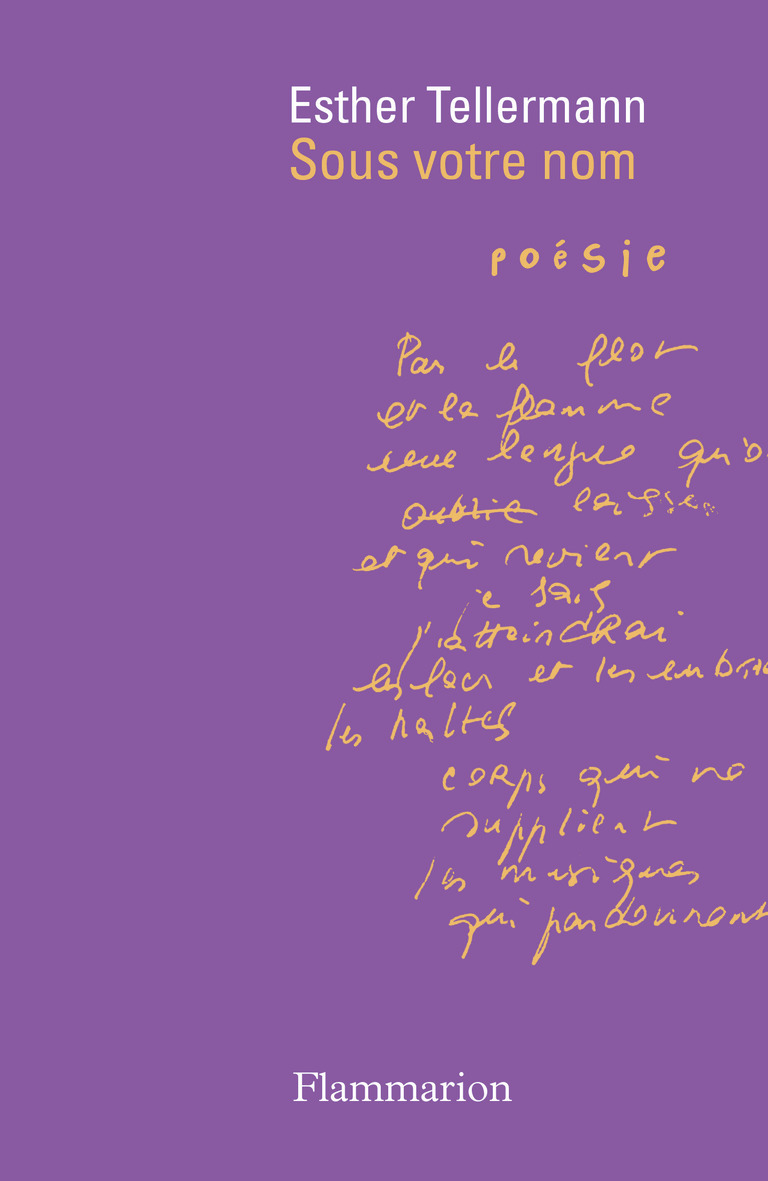 Esther Tellermann
Sous votre nom
poésie
Par le flot
et la flamme
une langue qu'o
oublie laisse
et qui revient
je sais
j'atteindrai
les lacs et les embras
les haltes
corps qui ne
supplient
les musiques
qui pardonnent
Flammarion